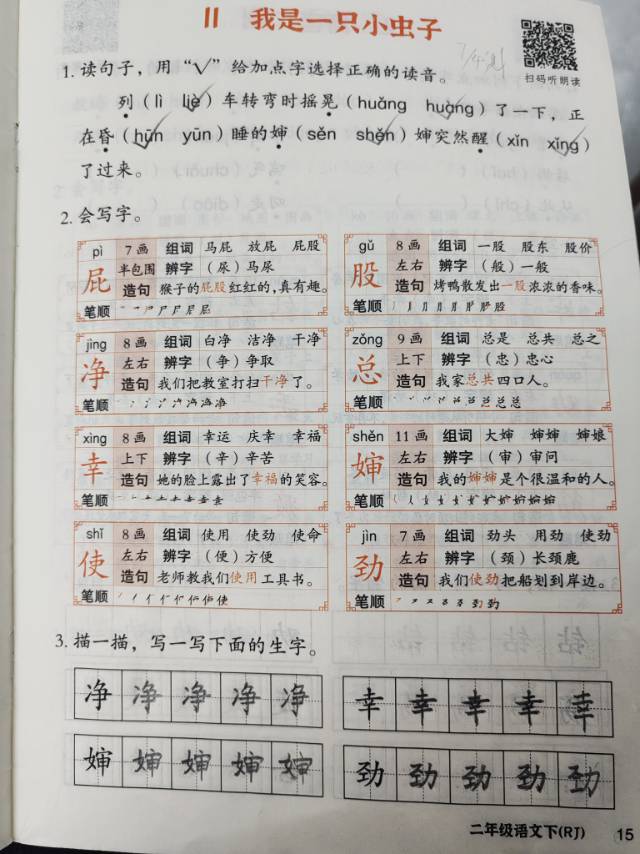 11 我是一只小虫子
扫码听朗读
1. 读句子，用“√”给加点字选择正确的读音。
列（lì liè）车转弯时摇晃（huǎng huàng）了一下，正
在昏（hūn yūn）睡的婶（sěn shěn）婶突然醒（xǐn xǐng）
了过来。
2. 会写字。
pì 7画 组词 马屁 放屁 屁股
屁 半包围 辨字 （尿）马尿
造句 猴子的屁股红红的，真有趣。
笔顺
gǔ 8画 组词 一股 股东 股价
股 左右 辨字 （般）一般
造句 烤鸭散发出一股浓浓的香味。
笔顺
jìng 8画 组词 白净 洁净 干净
净 左右 辨字 （争）争取
造句 我们把教室打扫干净了。
笔顺
zǒng 9画 组词 总是 总共 总之
总 上下 辨字 （忠）忠心
造句 我家总共四口人。
笔顺
xìng 8画 组词 幸运 庆幸 幸福
幸 上下 辨字 （辛）辛苦
造句 她的脸上露出了幸福的笑容。
笔顺
shěn 11画 组词 大婶 婶婶 婶娘
婶 左右 辨字 （审）审问
造句 我的婶婶是个很温和的人。
笔顺
shǐ 8画 组词 使用 使劲 使命
使 左右 辨字 （便）方便
造句 老师教我们使用工具书。
笔顺
jìn 7画 组词 劲头 用劲 使劲
劲 左右 辨字 （颈）长颈鹿
造句 我们使劲把船划到岸边。
笔顺
3. 描一描，写一写下面的生字。
净 净 净 净 净 幸 幸 幸 幸 幸
婶 婶 婶 婶 婶 劲 劲 劲 劲 劲
二年级语文下(RJ) 15